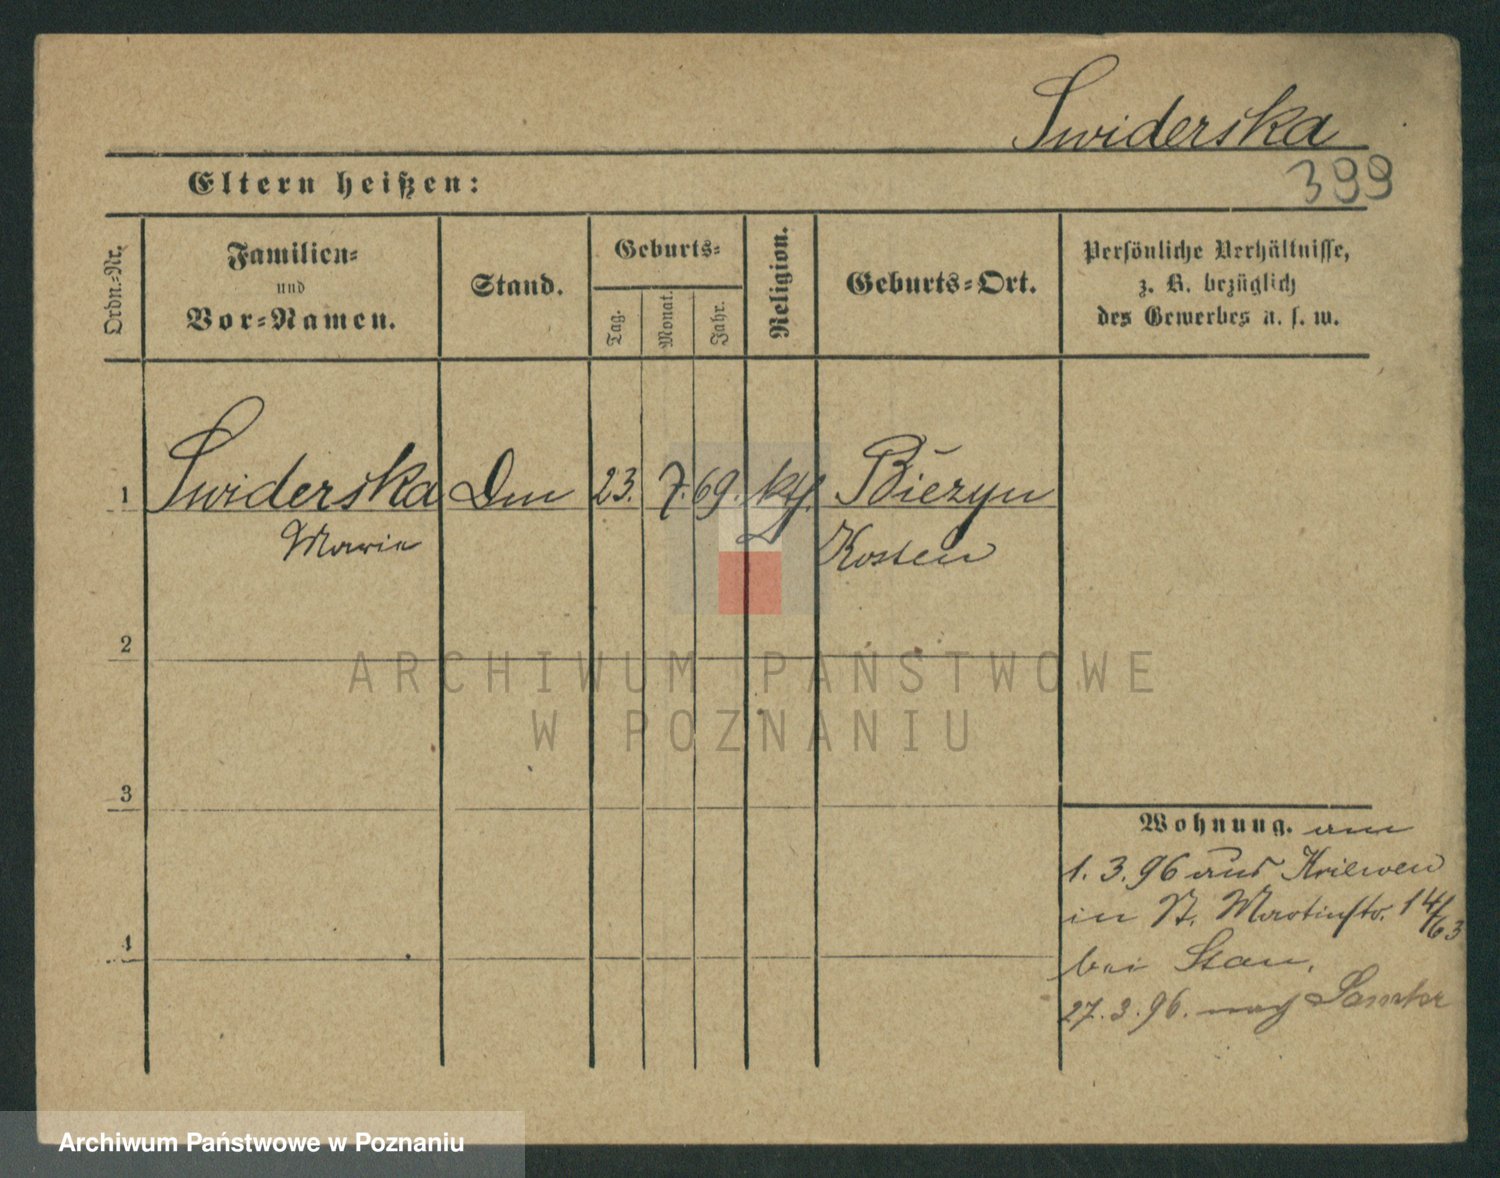 Swiderska
399
Eltern heißen:
Ordn.-Nr.
Familien-
und
Vor-Namen.
Stand.
Geburts-
Tag.
Monat.
Jahr.
Religion.
Geburts-Ort.
Persönliche Verhältnisse,
z. B. bezüglich
des Gewerbes u. s. w.
1 Swiderska 23. 7. 69. kth. Bieżyn
Marie Kosten
2
3
4
Wohnung. am
1. 3. 96 aus Kriewen
in St. Martinstr. 14/63
bei Stan,
27. 3. 96. nach Samter
ARCHIWUM PAŃSTWOWE
W POZNANIU
Archiwum Państwowe w Poznaniu